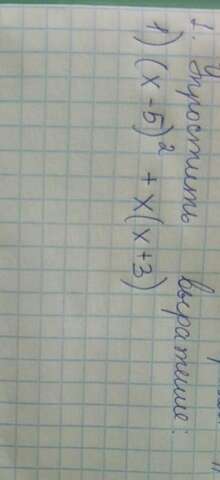 1. Упростить выражение:
1) (x - 5)² + x(x + 3)